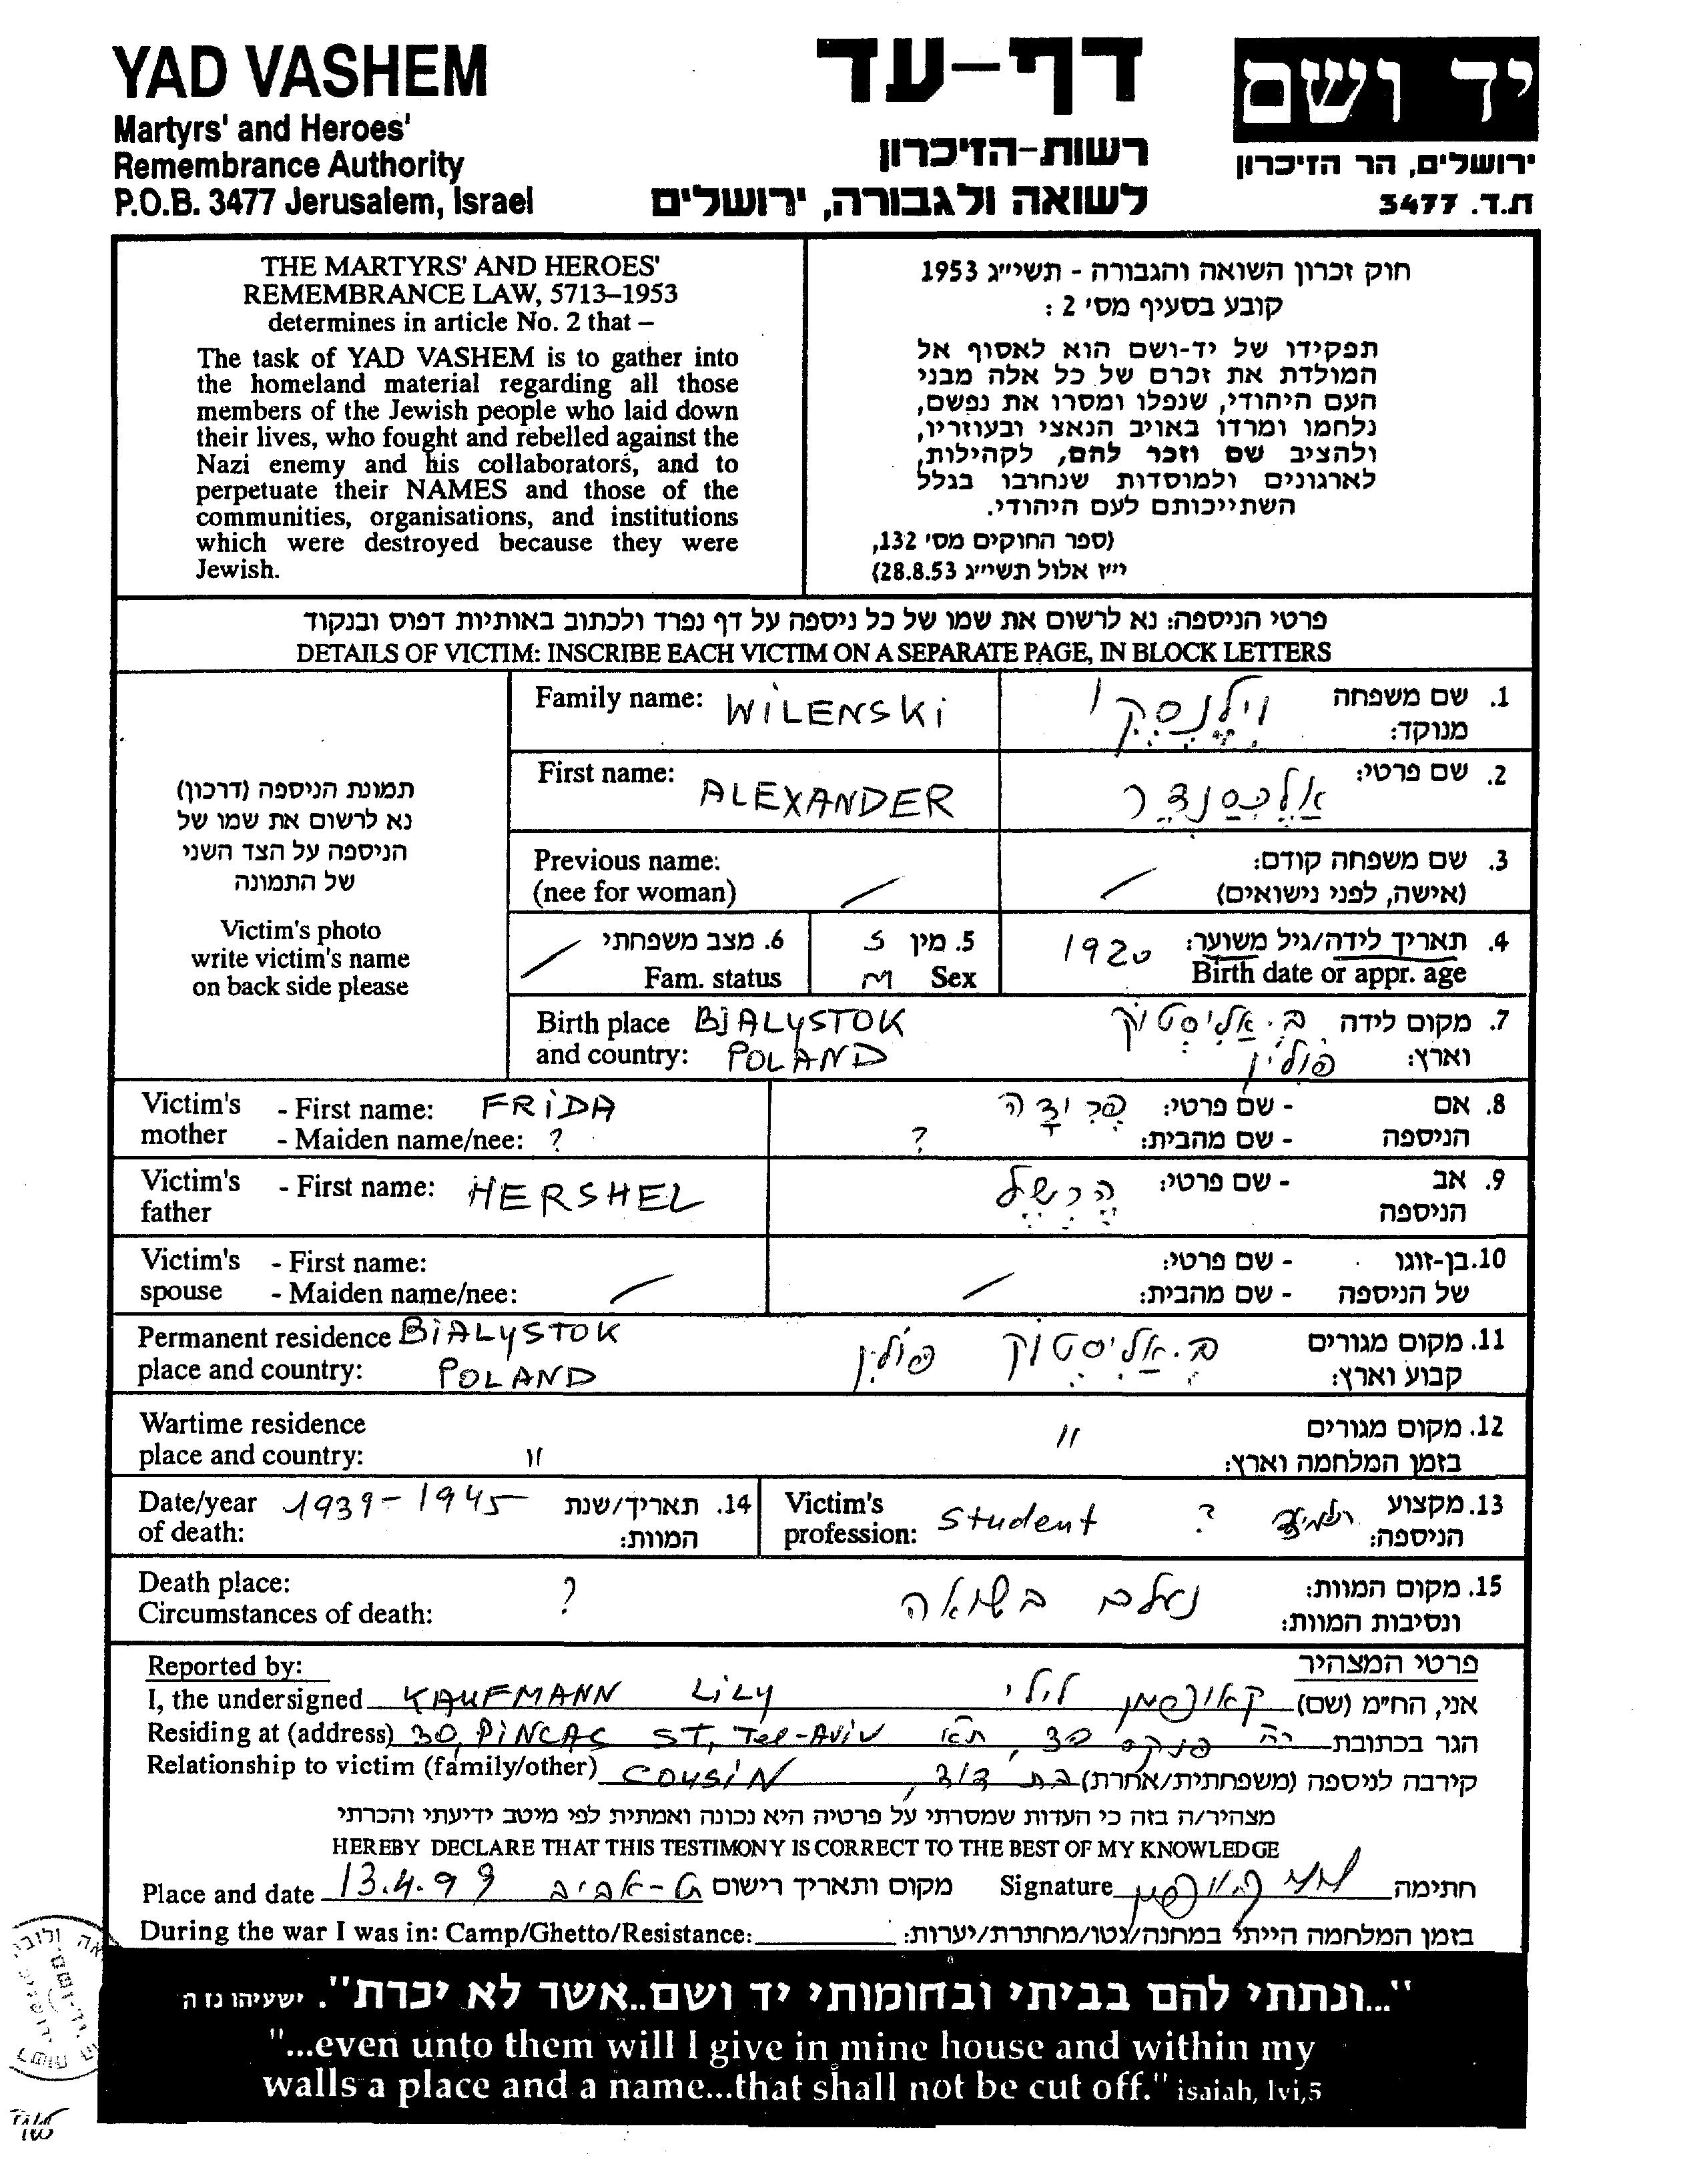 YAD VASHEM
Martyrs' and Heroes'
Remembrance Authority
P.O.B. 3477 Jerusalem, Israel
דף-עד
רשות-הזיכרון
לשואה ולגבורה, ירושלים
יד ושם
ירושלים, הר הזיכרון
ת.ד. 3477
THE MARTYRS' AND HEROES'
REMEMBRANCE LAW, 5713–1953
determines in article No. 2 that –
The task of YAD VASHEM is to gather into
the homeland material regarding all those
members of the Jewish people who laid down
their lives, who fought and rebelled against the
Nazi enemy and his collaborators, and to
perpetuate their NAMES and those of the
communities, organisations, and institutions
which were destroyed because they were
Jewish.
חוק זכרון השואה והגבורה - תשי״ג 1953
קובע בסעיף מס׳ 2 :
תפקידו של יד-ושם הוא לאסוף אל
המולדת את זכרם של כל אלה מבני
העם היהודי, שנפלו ומסרו את נפשם,
נלחמו ומרדו באויב הנאצי ובעוזריו,
ולהציב שם וזכר להם, לקהילות,
לארגונים ולמוסדות שנחרבו בגלל
השתייכותם לעם היהודי.
(ספר החוקים מס׳ 132,
י״ז אלול תשי״ג 28.8.53)
פרטי הניספה: נא לרשום את שמו של כל ניספה על דף נפרד ולכתוב באותיות דפוס ובנקוד
DETAILS OF VICTIM: INSCRIBE EACH VICTIM ON A SEPARATE PAGE, IN BLOCK LETTERS
תמונת הניספה (דרכון)
נא לרשום את שמו של
הניספה על הצד השני
של התמונה
Victim's photo
write victim's name
on back side please
Family name: WiLENSKi
1. שם משפחה וילנסקי
מנוקד:
First name: ALEXANDER
2. שם פרטי: אלכסנדר
Previous name: /
(nee for woman)
3. שם משפחה קודם: /
(אישה, לפני נישואים)
6. מצב משפחתי /
Fam. status
5. מין ז
M Sex
4. תאריך לידה/גיל משוער: 1920
Birth date or appr. age
Birth place BJALYSTOK
and country: POLAND
7. מקום לידה ב.אליסטוק
וארץ: פולין
Victim's - First name: FRiDA
mother - Maiden name/nee: ?
8. אם - שם פרטי: פרידה
הניספה - שם מהבית: ?
Victim's - First name: HERSHEL
father
9. אב - שם פרטי: הרשל
הניספה
Victim's - First name:
spouse - Maiden name/nee: /
10. בן-זוגו - שם פרטי:
של הניספה - שם מהבית: /
Permanent residence BiALYSTOK
place and country: POLAND
11. מקום מגורים ב.אליסטוק פולין
קבוע וארץ:
Wartime residence
place and country: "
12. מקום מגורים "
בזמן המלחמה וארץ:
Date/year 1939-1945
of death:
14. תאריך/שנת
המוות:
Victim's
profession: Student ?
13. מקצוע תלמיד
הניספה:
Death place: ?
Circumstances of death:
15. מקום המוות: נעלם בשואה
ונסיבות המוות:
Reported by:
פרטי המצהיר
I, the undersigned KAUFMANN LiLY
אני, הח״מ (שם) קאופמן לילי
Residing at (address) 30, PiNCAS ST, Tel-AViV
הגר בכתובת רח פנקס 30, ת״א
Relationship to victim (family/other) COUSiN
קירבה לניספה (משפחתית/אחרת) בת דוד
מצהיר/ה בזה כי העדות שמסרתי על פרטיה היא נכונה ואמתית לפי מיטב ידיעתי והכרתי
HEREBY DECLARE THAT THIS TESTIMONY IS CORRECT TO THE BEST OF MY KNOWLEDGE
Place and date 13.4.99
מקום ותאריך רישום ת-אביב
Signature לילי קאופמן חתימה
During the war I was in: Camp/Ghetto/Resistance:
בזמן המלחמה הייתי במחנה/גטו/מחתרת/יערות:
"...ונתתי להם בביתי ובחומותי יד ושם..אשר לא יכרת". ישעיהו נז ה
"...even unto them will I give in mine house and within my
walls a place and a name...that shall not be cut off." isaiah, lvi,5